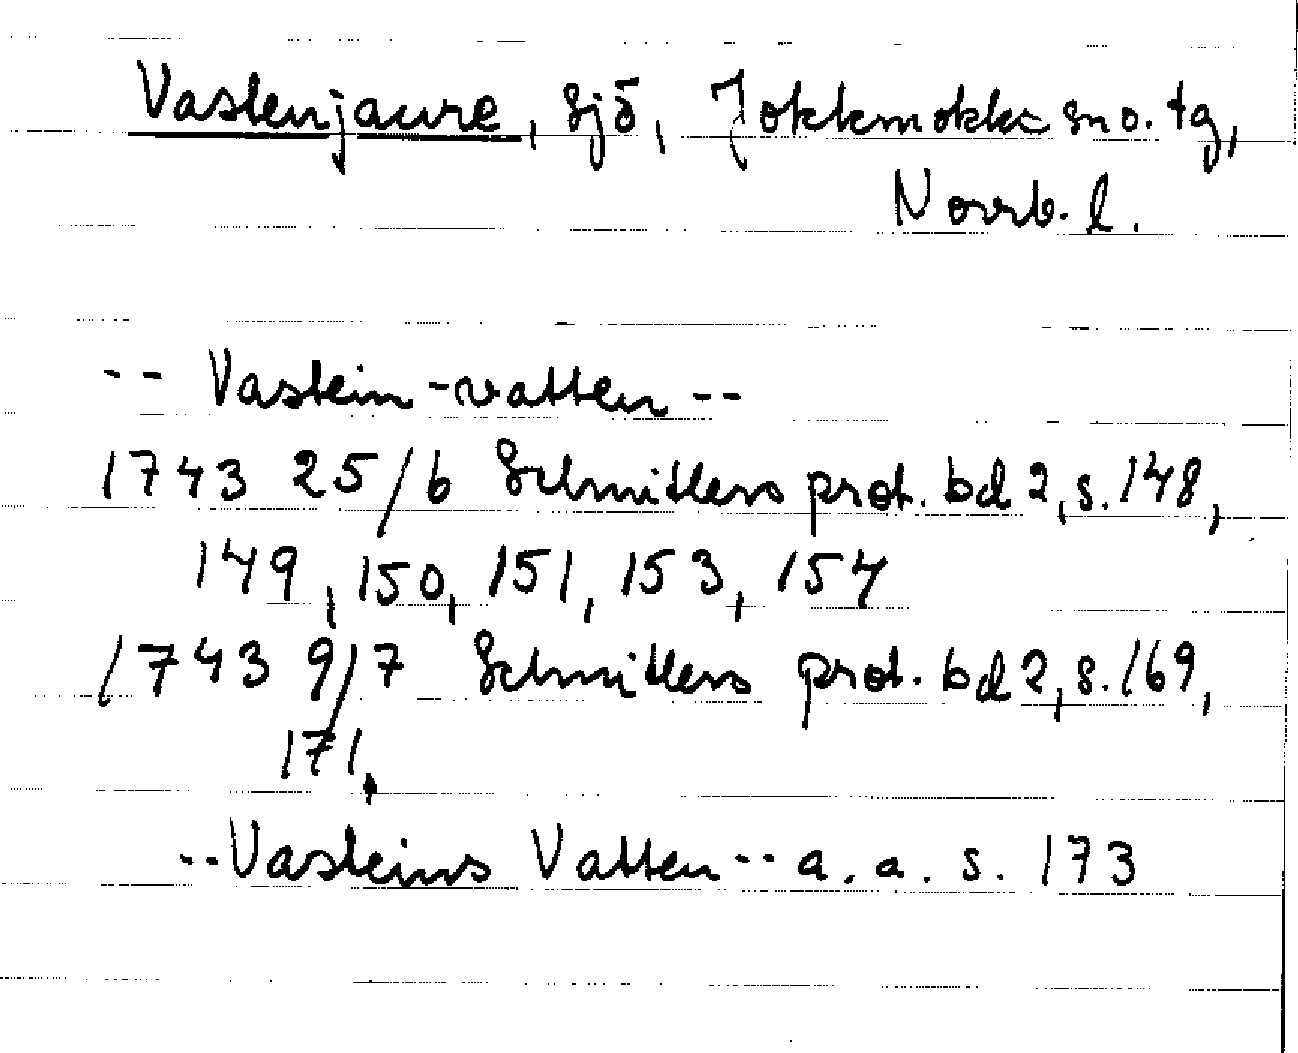 Vastenjaure, sjö, Jokkmokks sn o. tg,
Norrb. l.
-- Vastein-vatten --
1743 25/6 Schnitlers prot. bd 2, s. 148,
149, 150, 151, 153, 154
1743 9/7 Schnitlers prot. bd 2, s. 169,
171.
-- Vasteins Vatten -- a. a. s. 173